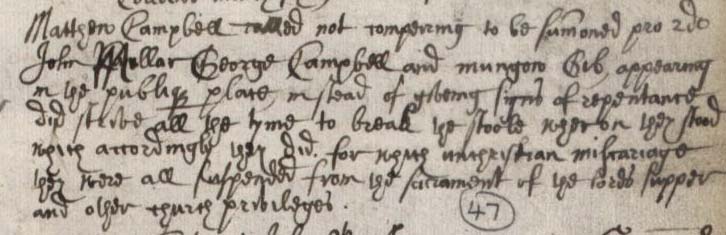 Matthew Campbell called not compeiring to be summoned pro 2do
John Mellar George Campbell and mungow Gib, appearing
in the publiq place, instead of giveing signs of repentance
did strive all the tyme to break the stoole wher on they stood
which accordingly they did. for which unchristian miscariage
they were all suspended from the sacrament of the lords supper
and other church priviledges.
47